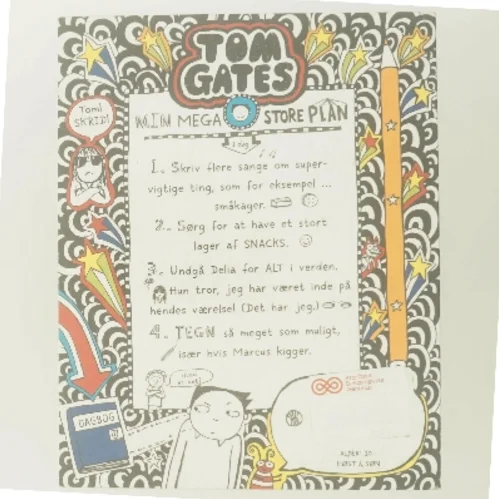 TOM
GATES
MIN MEGA STORE PLAN
I dag
Tom!
SKRID!
1. Skriv flere sange om super-
vigtige ting, som for eksempel ...
småkager.
2. Sørg for at have et stort
lager af SNACKS.
3. Undgå Delia for ALT i verden.
Hun tror, jeg har været inde på
hendes værelse! (Det har jeg.)
4. TEGN så meget som muligt,
især hvis Marcus kigger.
DAGBOG